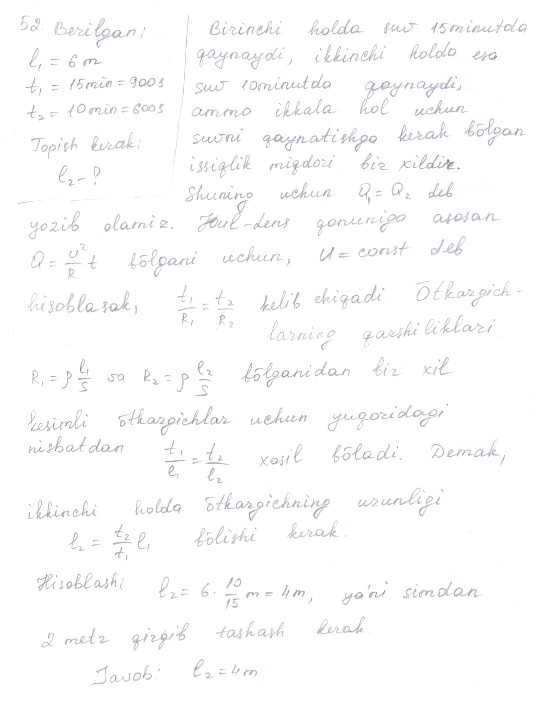 52. Berilgan:
l₁ = 6 m
t₁ = 15 min = 900 s
t₂ = 10 min = 600 s
Topish kerak:
l₂ - ?
Birinchi holda suv 15 minutda
qaynaydi, ikkinchi holda esa
suv 10 minutda qaynaydi,
ammo ikkala hol uchun
suvni qaynatishga kerak bōlgan
issiqlik miqdori bir xildir.
Shuning uchun Q₁ = Q₂ deb
yozib olamiz. Joul-Lens qonuniga asosan
Q = U²/R t bōlgani uchun, U = const deb
hisoblasak, t₁/R₁ = t₂/R₂ kelib chiqadi. Ōtkazgich-
larning qarshiliklari
R₁ = ρ l₁/S va R₂ = ρ l₂/S bōlganidan bir xil
kesimli ōtkazgichlar uchun yuqoridagi
nisbatdan t₁/l₁ = t₂/l₂ xosil bōladi. Demak,
ikkinchi holda ōtkazgichning uzunligi
l₂ = t₂/t₁ l₁ bōlishi kerak.
Hisoblash: l₂ = 6 · 10/15 m = 4 m, ya'ni simdan
2 metr qirqib tashash kerak.
Javob: l₂ = 4 m